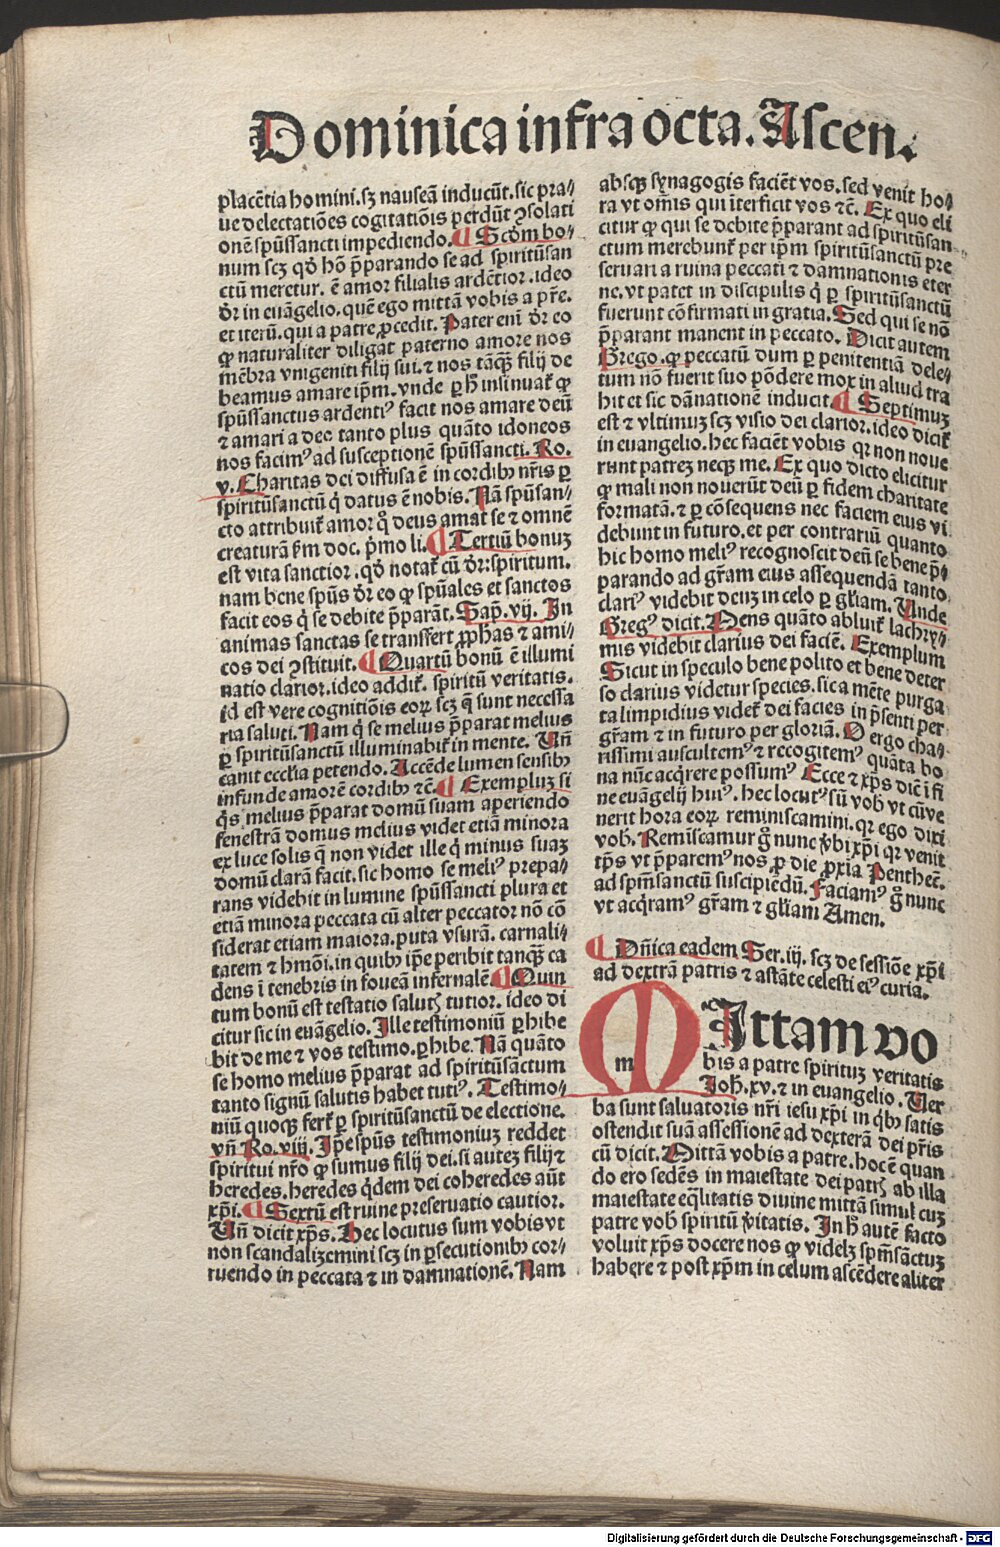 Dominica infra octa. Ascen.
placẽtia homini. sꝫ nauseã inducũt. sic pra⸗
ue delectatiões cogitatiõis perdũt ꝯsolati
onẽ spũssancti impediendo. ¶ Scðm bo⸗
num scꝫ qð hõ p̃parando se ad spiritũsan
ctũ meretur. ẽ amor filialis ardẽtior. ideo
ðr in euãgelio. quẽ ego mittã vobis a pr̃e.
et iterũ. qui a patre ꝓcedit. Pater eni ðr eo
ꝙ naturaliter diligat paterno amore nos
mẽbra vnigeniti filij sui. ⁊ nos tãqꝫ filij de
beamus amare ip̃m. vnde ꝑ hͦ insinuat̃ ꝙ
spũssanctus ardentiꝰ facit nos amare deũ
⁊ amari a deo tanto plus quãto idoneos
nos facimꝰ ad susceptionẽ spũssancti. Ro.
v. Charitas dei diffusa ẽ in cordibꝫ nr̃is ꝑ
spiritũsanctũ q̇ datus ẽ nobis. Nã spũsan⸗
cto attribuit̃ amor qͦ deus amat se ⁊ omnẽ
creaturã ẜm doc. p̃mo li. ¶ Tertiũ bonuꝫ
est vita sanctior. qð notat̃ cũ ðr: spiritum.
nam bene spũs ðr eo ꝙ spũales et sanctos
facit eos q̇ se debite p̃parãt. Sap. vij. In
animas sanctas se transfert ꝓphãs ⁊ ami⸗
cos dei ꝯstituit. ¶ Quartũ bonũ ẽ illumi
natio clarior. ideo addit̃. spiritũ veritatis.
id est vere cognitiõis eoꝝ scꝫ q̃ sunt necessa
ria saluti. Nam q̇ se melius p̃parat melius
ꝑ spiritũsanctũ illuminabit̃ in mente. Vñ
canit eccl̃ia petendo. Accẽde lumen sensibꝫ
infunde amorẽ cordibꝫ ⁊c̃. ¶ Exempluꝫ si
q̇s melius p̃parat domũ suam aperiendo
fenestrã domus melius videt etiã minora
ex luce solis q̃ non videt ille q̇ minus suaꝫ
domũ clarã facit. sic homo se meliꝰ prepa⸗
rans videbit in lumine spũssancti plura et
etiã minora peccata cũ alter peccator nõ cõ
siderat etiam maiora. puta vsurã. carnali⸗
tatem ⁊ hmõi. in quibꝫ ip̃e peribit tanqꝫ ca
dens ĩ tenebris in foueã infernalẽ ¶ Quin
tum bonũ est testatio salutꝭ tutior. ideo di
citur sic in euãgelio. Ille testimoniũ ꝑhibe
bit de me ⁊ vos testimo. ꝑhibe. Nã quãto
se homo melius p̃parat ad spiritũsãctum
tanto signũ salutis habet tutiꝰ. Testimo⸗
niũ quoqꝫ fert̃ ꝑ spiritũsanctũ de electione.
vñ Ro. viij. Ip̃e spũs testimoniuꝫ reddet
spiritui nr̃o ꝙ sumus filij dei. si auteꝫ filij ⁊
heredes. heredes q̇dem dei coheredes aũt
xp̃i. ¶ Sextũ est ruine preseruatio cautior.
Vñ dicit xp̃s. Hec locutus sum vobis vt
non scandalizemini scꝫ in ꝑsecutionibꝫ cor⸗
ruendo in peccata ⁊ in damnationẽ. Nam
absqꝫ synagogis faciẽt vos. sed venit ho⸗
ra vt om̃is qui ĩterficit vos ⁊c̃. Ex quo eli
citur ꝙ qui se debite p̃parant ad spiritũsan
ctum merebunt̃ per ip̃m spiritũsanctũ pre
seruari a ruina peccati ⁊ damnationis eter
ne. vt patet in discipulis q̇ ꝑ spiritũsanctũ
fuerunt cõfirmati in gratia. Sed qui se nõ
p̃parant manent in peccato. Dicit autem
Grego. ꝙ peccatũ dum ꝑ penitentiã dele⸗
tum nõ fuerit suo põdere mox in aliud tra
hit et sic dãnationẽ inducit. ¶ Septimuꝫ
est ⁊ vltimuꝫ scꝫ visio dei clarior. ideo dicit̃
in euangelio. hec faciẽt vobis qꝛ non noue
runt patreꝫ necqꝫ me. Ex quo dicto elicitur
ꝙ mali non nouerũt deũ ꝑ fidem charitate
formatã. ⁊ ꝑ cõsequens nec faciem eius vi
debunt in futuro. et per contrariũ quanto
hic homo meliꝰ recognoscit deũ se bene p̃⸗
parando ad gr̃am eius assequendã tanto
clariꝰ videbit deuꝫ in celo ꝑ gl̃iam. Unde
Gregꝰ dicit. Mens quãto abluit̃ lachry⸗
mis videbit clarius dei faciẽ. Exemplum
Sicut in speculo bene polito et bene deter
so clarius videtur species. sic a mẽte purga
ta limpidius videt̃ dei facies in p̃senti per
gr̃am ⁊ in futuro per gloriã. O ergo cha⸗
rissimi auscultemꝰ ⁊ recogitemꝰ quãta bo
na nũc acq̇rere possumꝰ Ecce ⁊ xp̃s dic̃ ĩ fi
ne euãgelij huiꝰ. hec locutꝰ sũ vob̃ vt cũ ve
nerit hora eoꝝ reminiscamini. qꝛ ego dixi
vob̃. Remĩscamur gͦ nunc ṽbi xp̃i qꝛ venit
tp̃s vt p̃paremꝰ nos ꝓ die ꝓxĩa Penthec̃.
ad spm̃sanctũ suscipiẽdũ. Faciamꝰ gͦ nunc
vt acq̇ramꝰ gr̃am ⁊ gl̃iam Amen.
¶ Dñica eadem Ser. iij. scꝫ de sessiõe xp̃i
ad dextrã patris ⁊ astãte celesti eiꝰ curia.
MIttam vo
m
bis a patre spirituꝫ veritatis
Joh̃. xv. ⁊ in euangelio. Ver
ba sunt saluatoris nr̃i iesu xp̃i in q̇bꝫ satis
ostendit suã assessionẽ ad dexterã dei pr̃is
cũ dicit. Mittã vobis a patre. hoc ẽ quan
do ero sedẽs in maiestate dei patrꝭ ab illa
maiestate eq̃litatis diuine mittã simul cuꝫ
patre vob̃ spiritũ ṽitatis. In hͦ autẽ facto
voluit xp̃s docere nos ꝙ videlꝫ spm̃sãctuꝫ
habere ⁊ post xp̃m in celum ascẽdere aliter
Digitalisierung gefördert durch die Deutsche Forschungsgemeinschaft - DFG